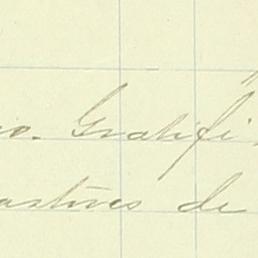 no. Gratifi
astres de